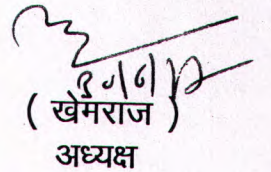 ( खेमराज )
अध्यक्ष